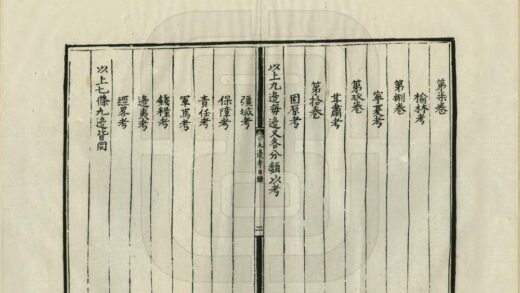 第柒卷
榆林考
第捌卷
寧夏考
第玖卷
甘肅考
第拾卷
固原考
以上九邊每邊又各分類以考
九邊考目錄
二
彊域考
保障考
責任考
軍馬考
錢糧考
邊夷考
經畧考
以上七條九邊皆同